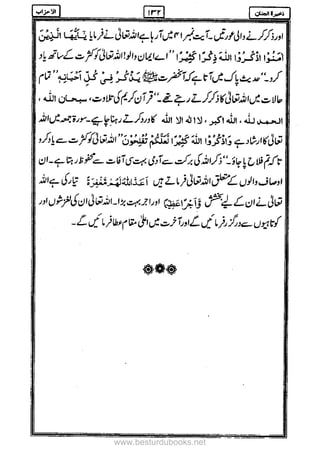 ذخیرۃ الجنان ۱۳۲ الاحزاب
اور ذکر کرنے والی عورتیں۔ آیت نمبر ۴۱ میں آ رہا ہے اللہ تعالیٰ نے فرمایا یٰٓاَیُّهَا الَّذِیْنَ
اٰمَنُوْا اذْكُرُوا اللّٰهَ ذِكْرًا كَثِیْرًا ’’اے ایمان والو! اللہ تعالیٰ کو کثرت کے ساتھ یاد
کرو۔‘‘ حدیث پاک میں آتا ہے کہ آنحضرت ﷺ یَذْكُرُ فِیْ كُلِّ اَحْیَانِهٖ ’’تمام
حالات میں اللہ تعالیٰ کا ذکر کرتے رہتے تھے۔‘‘ قرآن کریم کی تلاوت، سبحان اللہ ،
الحمد للہ ، اللہ اکبر ، لا الہ الا اللہ کا ورد کرتے رہنا چاہیے۔ سورۃ جمعہ میں اللہ
تعالیٰ کا ارشاد ہے وَاذْكُرُوا اللّٰهَ كَثِیْرًا لَّعَلَّكُمْ تُفْلِحُوْنَ ’’اللہ تعالیٰ کو کثرت سے یاد کرو
تاکہ تم فلاح پا جاؤ۔‘‘ ذکر اللہ کی برکت سے آدمی بہت سی آفات سے محفوظ رہتا ہے۔ ان
اوصاف والوں کے متعلق اللہ تعالیٰ فرماتے ہیں اَعَدَّ اللّٰهُ لَهُمْ مَّغْفِرَةً تیار کی ہے اللہ
تعالیٰ نے ان کے لیے بخشش وَّاَجْرًا عَظِیْمًا اور اجر بہت بڑا۔ اللہ تعالیٰ ان کی لغزشوں اور
کوتاہیوں سے درگزر فرمائیں گے اور آخرت میں اعلیٰ مقام عطا فرمائیں گے۔
www.besturdubooks.net